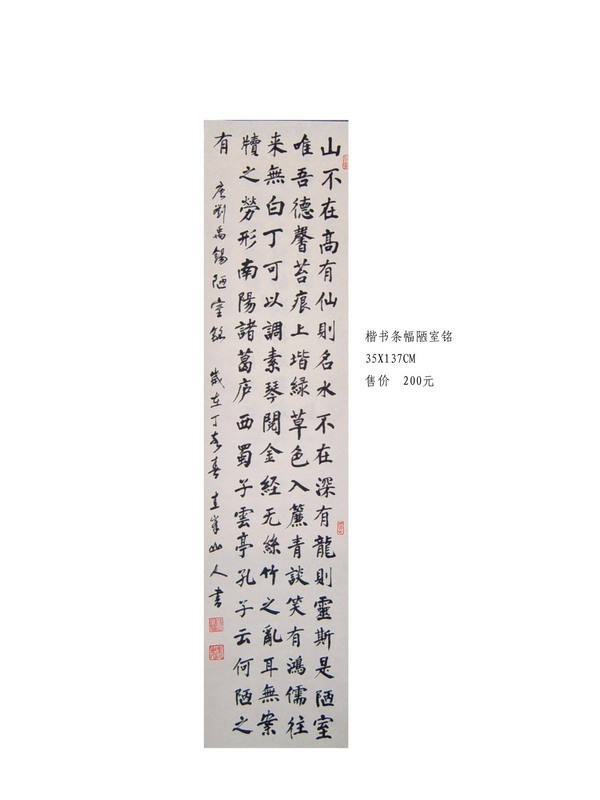 山不在高有仙則名水不在深有龍則靈斯是陋室
唯吾德馨苔痕上堦緑草色入簾青談笑有鴻儒往
来無白丁可以調素琴閱金経无絲竹之亂耳無案
牘之勞形南陽諸葛庐西蜀子雲亭孔子云何陋之
有 唐劉禹錫陋室銘 歲在丁亥春 峯山人書
楷书条幅陋室铭
35X137CM
售价 200元